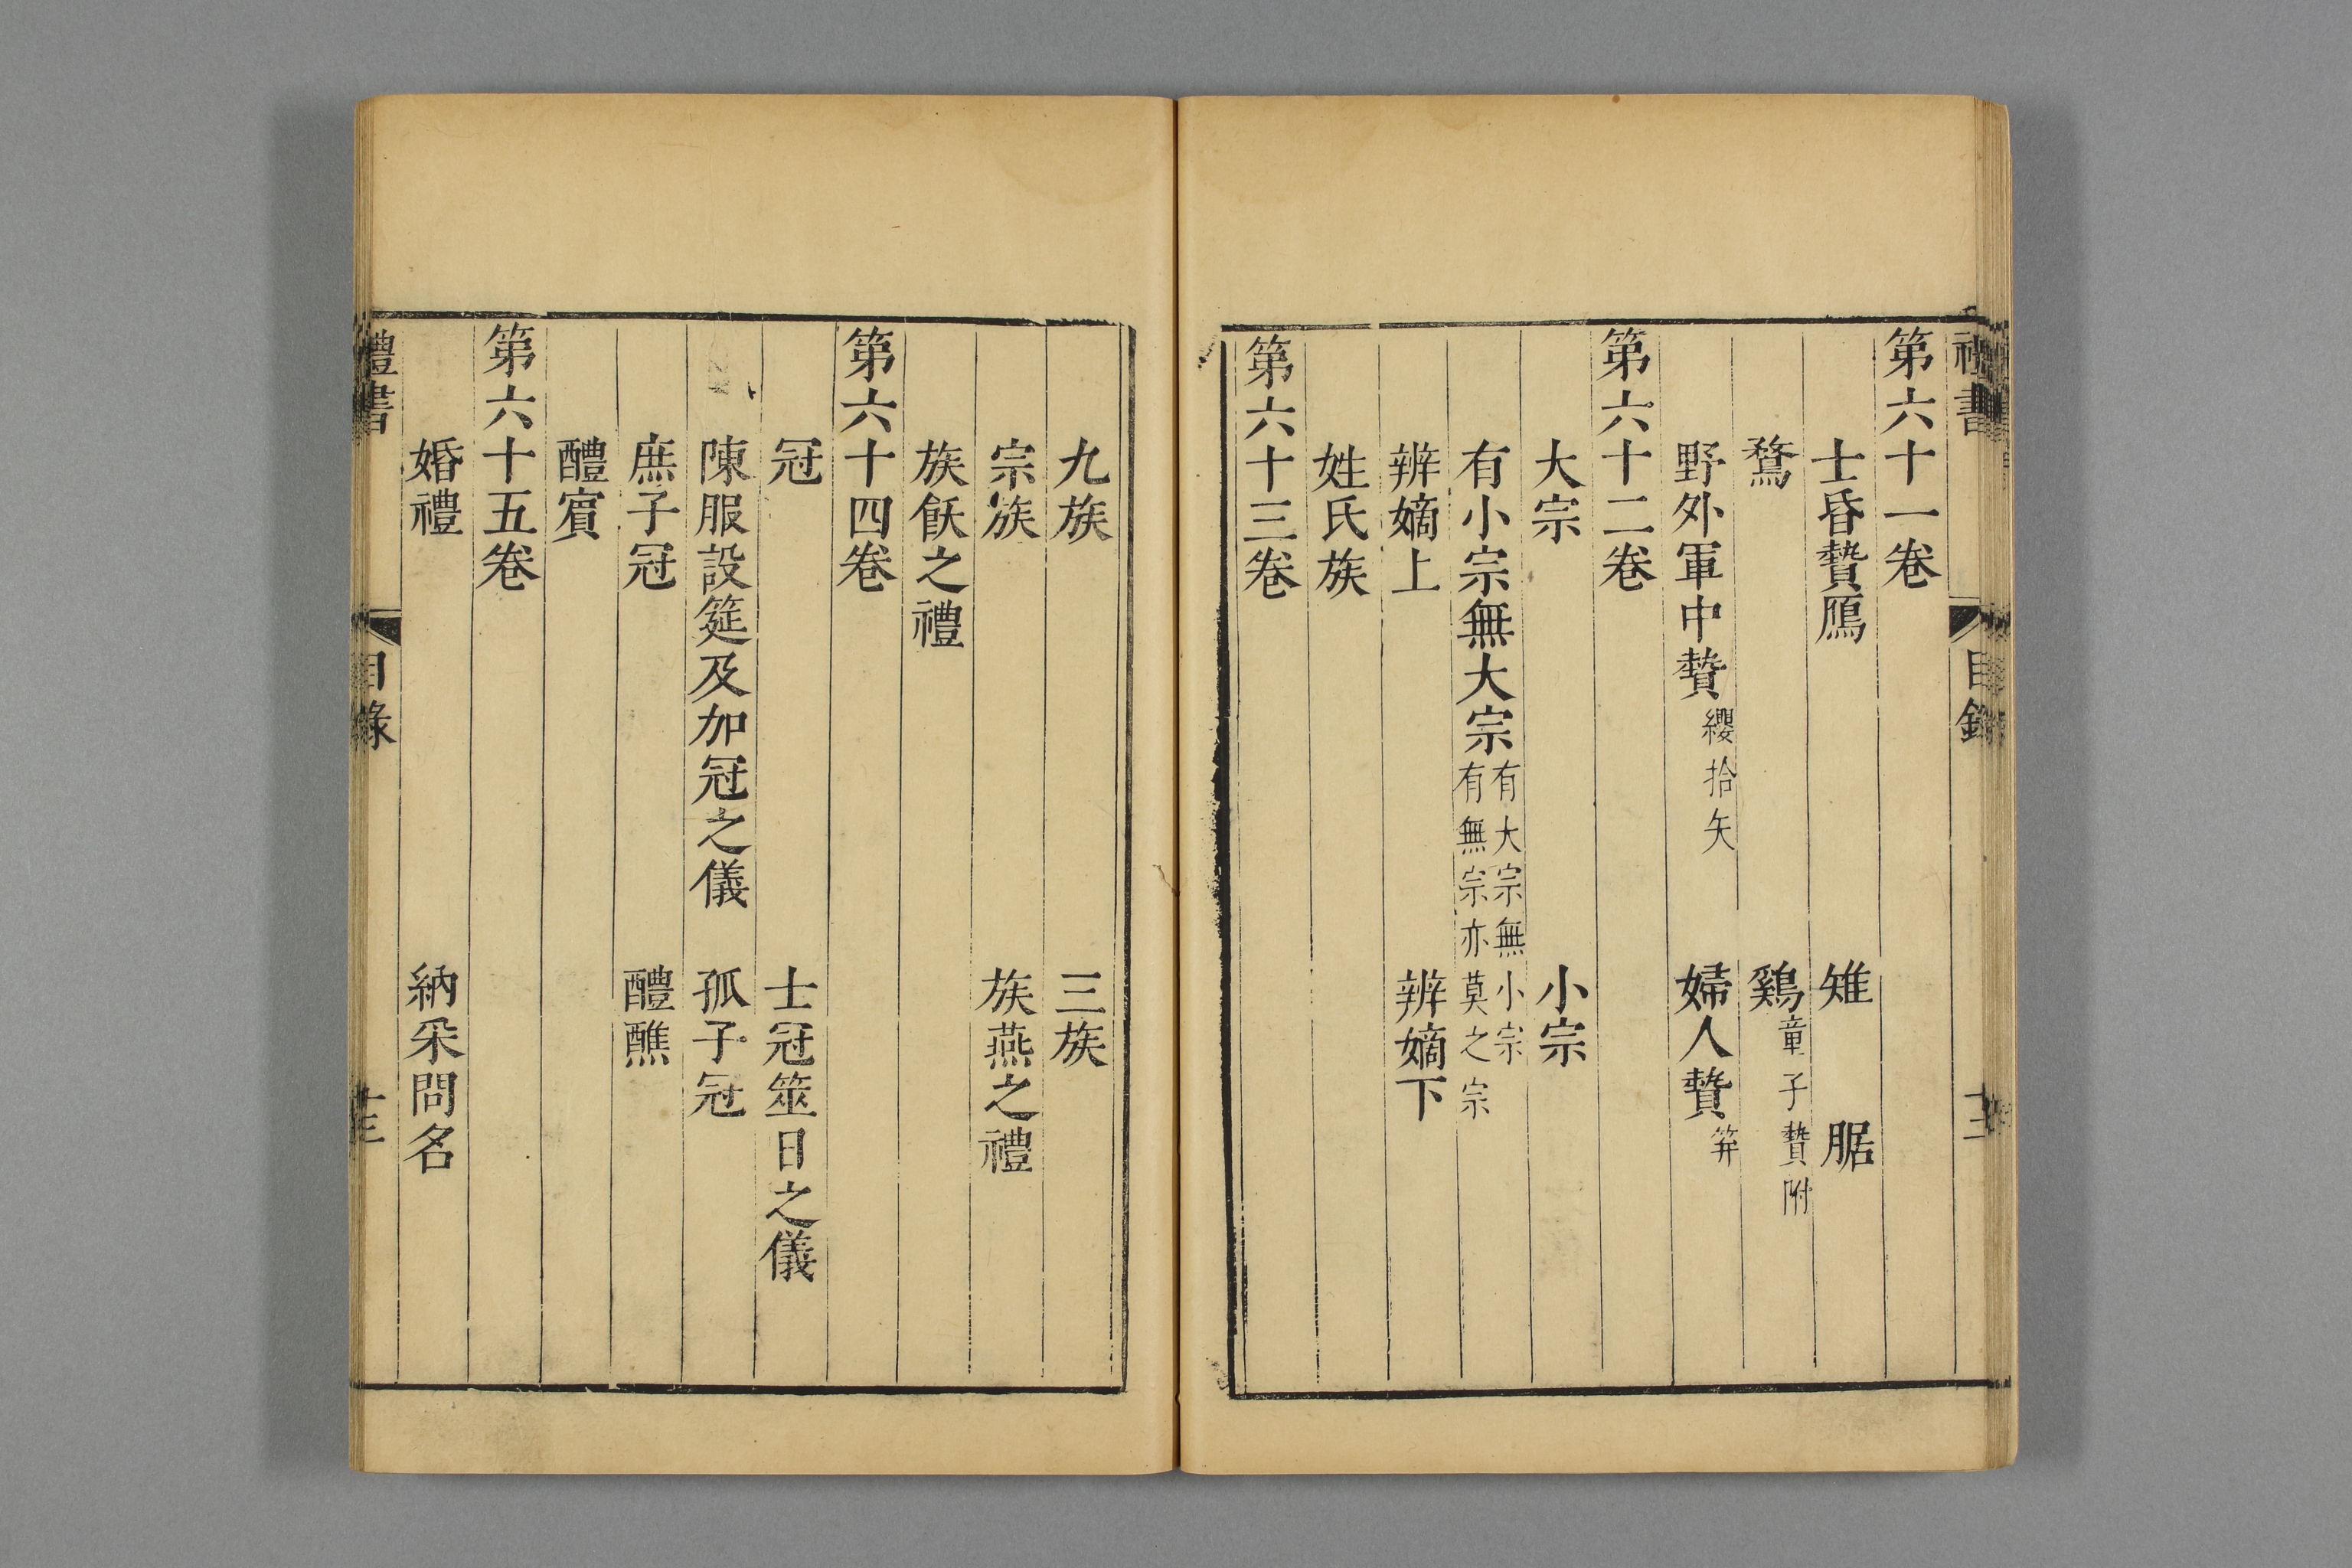 禮書 目錄
第六十一卷
士昏贄鴈 雉 腒
鶩 鷄童子贄附
野外軍中贄纓拾矢 婦人贄笲
第六十二卷
大宗 小宗
有小宗無大宗有大宗無小宗
有無宗亦莫之宗
辨嫡上 辨嫡下
姓氏族
第六十三卷
九族 三族
宗族 族燕之禮
族飫之禮
第六十四卷
冠 士冠筮日之儀
陳服設筵及加冠之儀 孤子冠
庶子冠 醴醮
醴賓
第六十五卷
婚禮 納采問名
禮書 目錄 十三